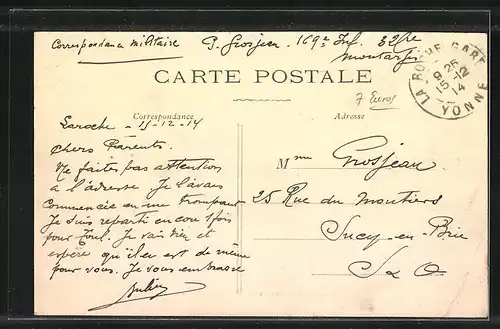 Correspondance militaire P. Grosjean. 169e Inf. 32e Cie
Montargis
CARTE POSTALE
7 Euros
LA ROCHE GARE
9 25
15-12
14
YONNE
Correspondance
Adresse
Laroche - 15-12-14
Chers Parents.
Ne faites pas attention
à l'adresse. Je l'avais
commencée en me trompant
Je suis reparti encore 1 fois
pour Toul. Je vais bien et
espère qu'il en est de même
pour vous. Je vous embrasse
Julien
Mme Grosjean.
25 Rue du Moutiers
Sucy-en-Brie
S & O